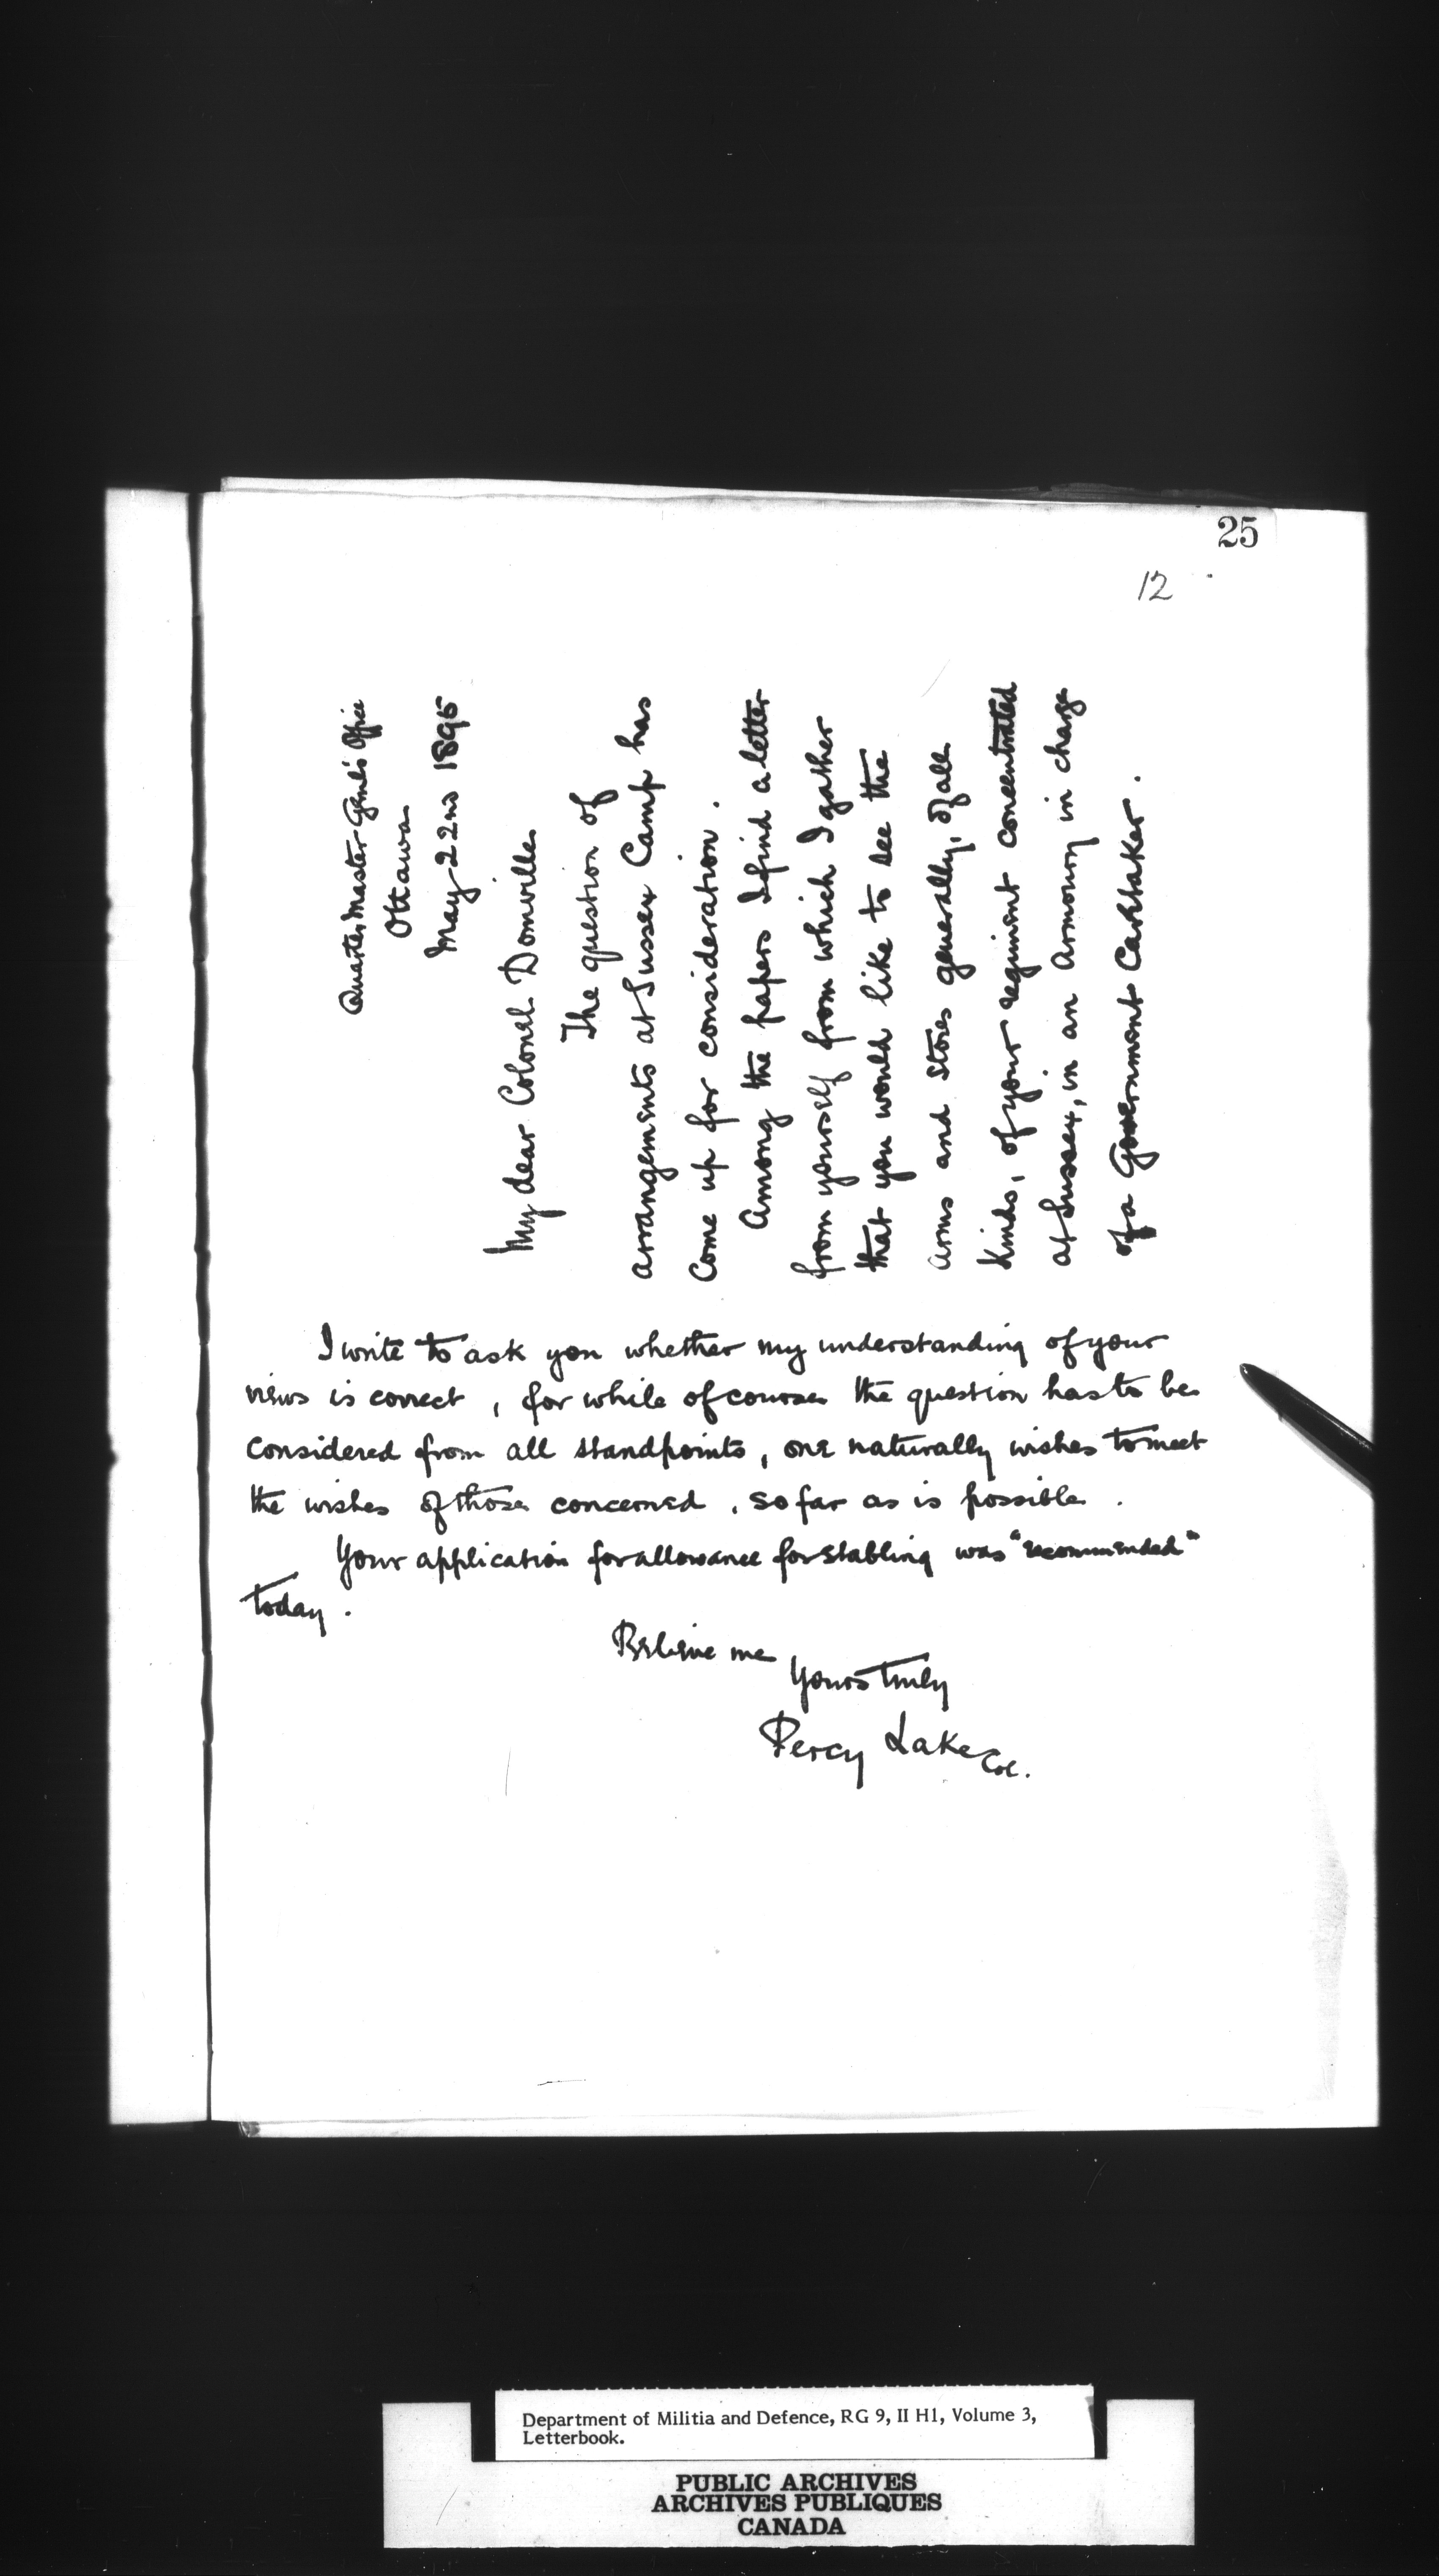 25
12
Quarter Master Genl's Office
Ottawa
May 22nd 1895
My dear Colonel Domville
The question of
arrangements at Sussex Camp has
come up for consideration.
Among the papers I find a letter
from yourself from which I gather
that you would like to see the
arms and stores generally, of all
kinds, of your regiment concentrated
at Sussex, in an Armoury in charge
of a Government Caretaker.
I write to ask you whether my understanding of your
views is correct, for while of course the question has to be
considered from all standpoints, one naturally wishes to meet
the wishes of those concerned, so far as is possible.
Your application for allowance for stabling was "recommended"
today.
Believe me
Yours truly
Percy Lake Col.
Department of Militia and Defence, RG 9, II H1, Volume 3,
Letterbook.
PUBLIC ARCHIVES
ARCHIVES PUBLIQUES
CANADA